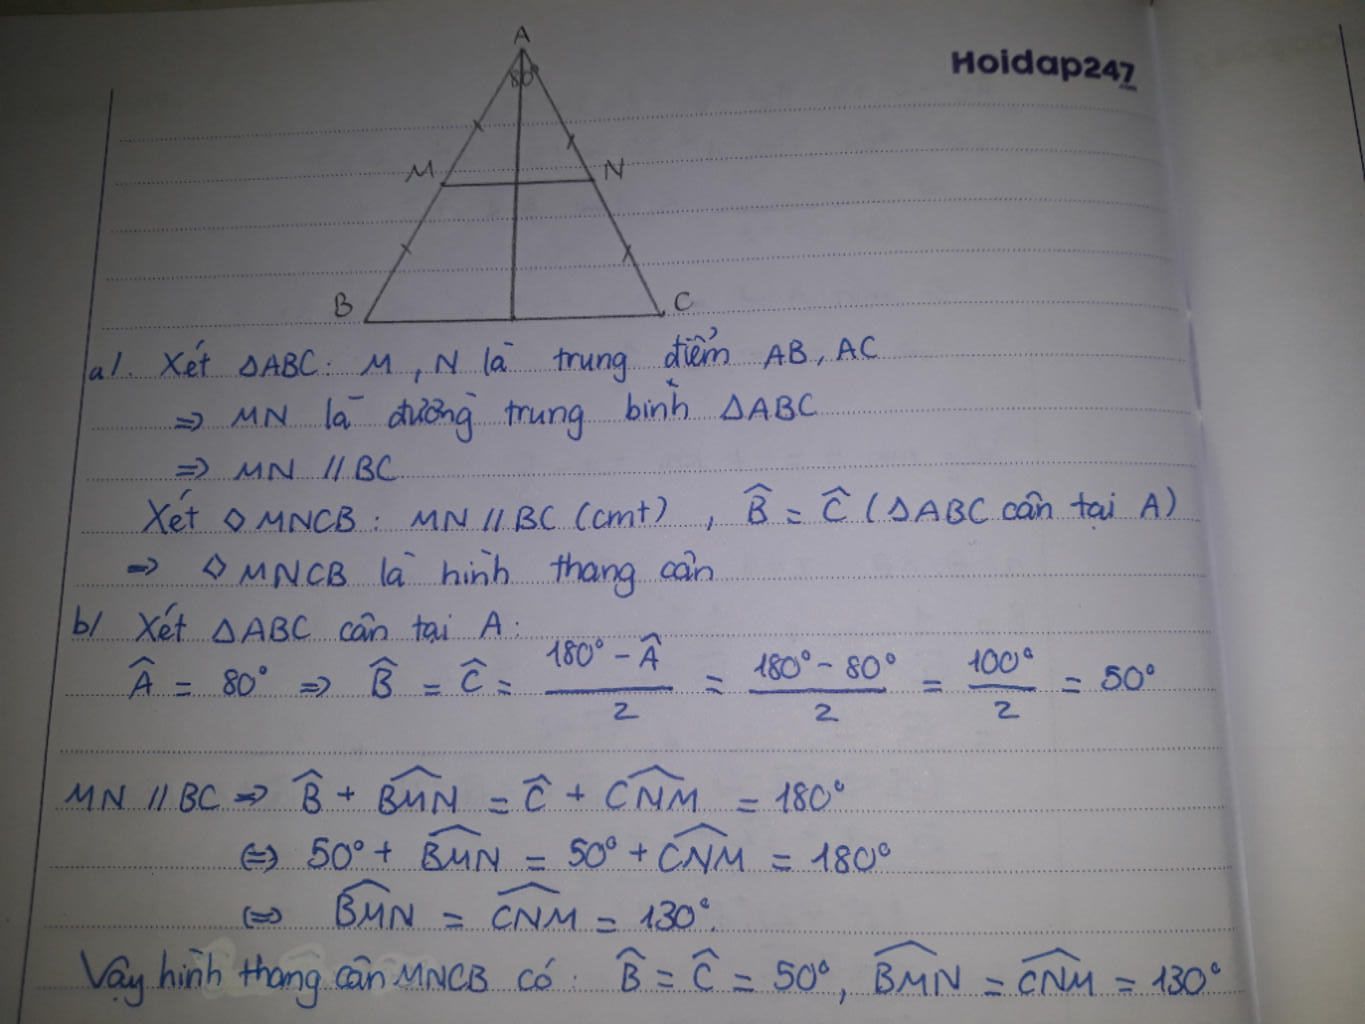 Hoidap247
.com
A
80°
M N
B C
a/. Xét ΔABC: M, N là trung điểm AB, AC
=> MN là đường trung bình ΔABC
=> MN // BC
Xét ◇MNCB: MN // BC (cmt), B̂ = Ĉ (ΔABC cân tại A)
=> ◇MNCB là hình thang cân
b/ Xét ΔABC cân tại A:
Â = 80° => B̂ = Ĉ = (180° - Â)/2 = (180° - 80°)/2 = 100°/2 = 50°
MN // BC => B̂ + B̂M̂N̂ = Ĉ + ĈN̂M̂ = 180°
<=> 50° + B̂M̂N̂ = 50° + ĈN̂M̂ = 180°
<=> B̂M̂N̂ = ĈN̂M̂ = 130°.
Vậy hình thang cân MNCB có: B̂ = Ĉ = 50°, B̂M̂N̂ = ĈN̂M̂ = 130°